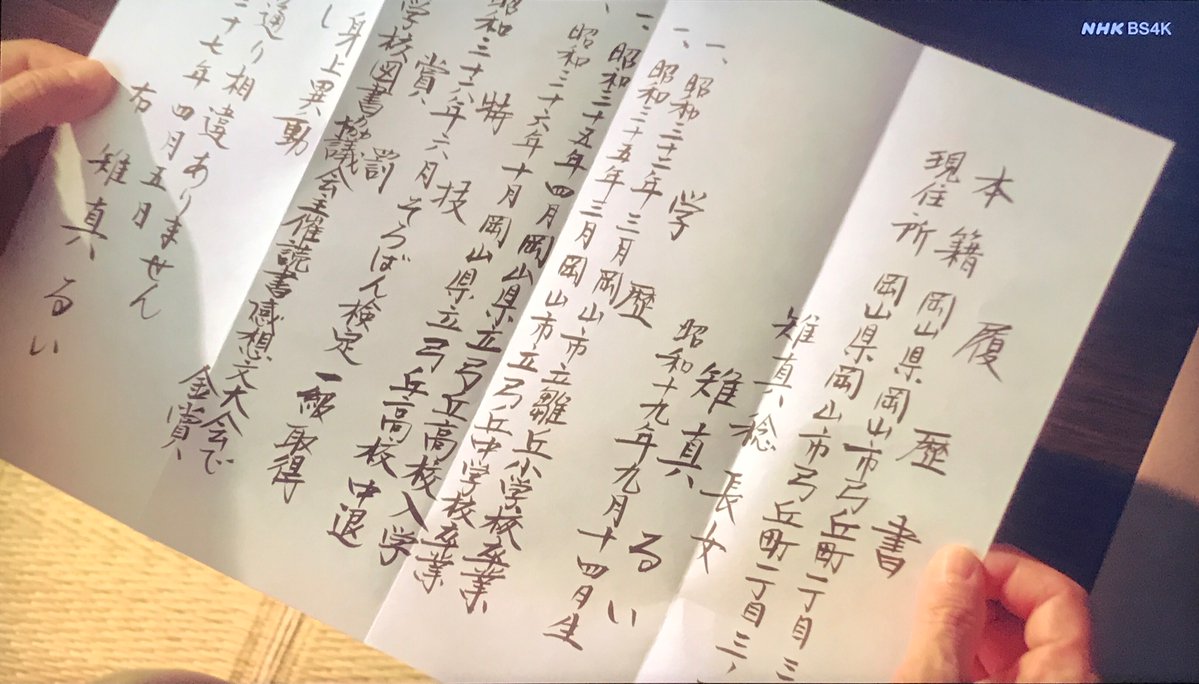 履歴書
本籍 岡山県岡山市弓丘町二丁目三
現住所 岡山県岡山市弓丘町二丁目三
雉真稔 長女
雉真 るい
昭和十九年九月十四日生
学歴
一、昭和三十二年三月岡山市立雛丘小学校卒業
一、昭和三十五年三月岡山市立弓丘中学校卒業
一、昭和三十五年四月岡山県立弓丘高校入学
昭和三十六年十月岡山県立弓丘高校中退
特技
昭和三十六年六月 そろばん検定 一級取得
賞罰
学校図書協議会主催読書感想文大会で
金賞
身上異動
し
通り相違ありません
三十七年四月五日
右 雉真 るい
NHK BS4K